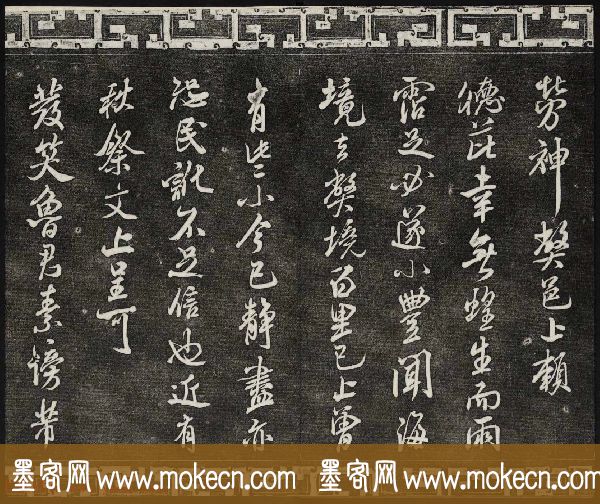 劳神弊邑上赖
德芘幸无蝗生而雨
霑足必遂小豐聞海
境去弊境百里已上曾
有些小今已静盡亦
恐民訛不足信也近有
秋祭文上呈可
發笑魯君素謗芾
墨客网 www.mokecn.com 墨客网 www.mokecn.com